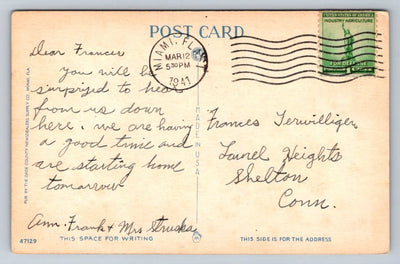 POST CARD
MIAMI, FLA.
MAR 12
5 30 PM
1941
UNITED STATES OF AMERICA
INDUSTRY AGRICULTURE
FOR DEFENSE
Dear Frances
you will be
surpryed to hear
from us down
here. we are having
a good time and
are starting home
tomorrow
Ann. Frank & Mrs
Frances Terwilliger
Laurel Heights
Shelton
Conn.
PUB. BY THE DADE COUNTY NEWSDEALERS SUPPLY CO., MIAMI, FLA.
MADE IN U.S.A.
47129
THIS SPACE FOR WRITING
THIS SIDE IS FOR THE ADDRESS